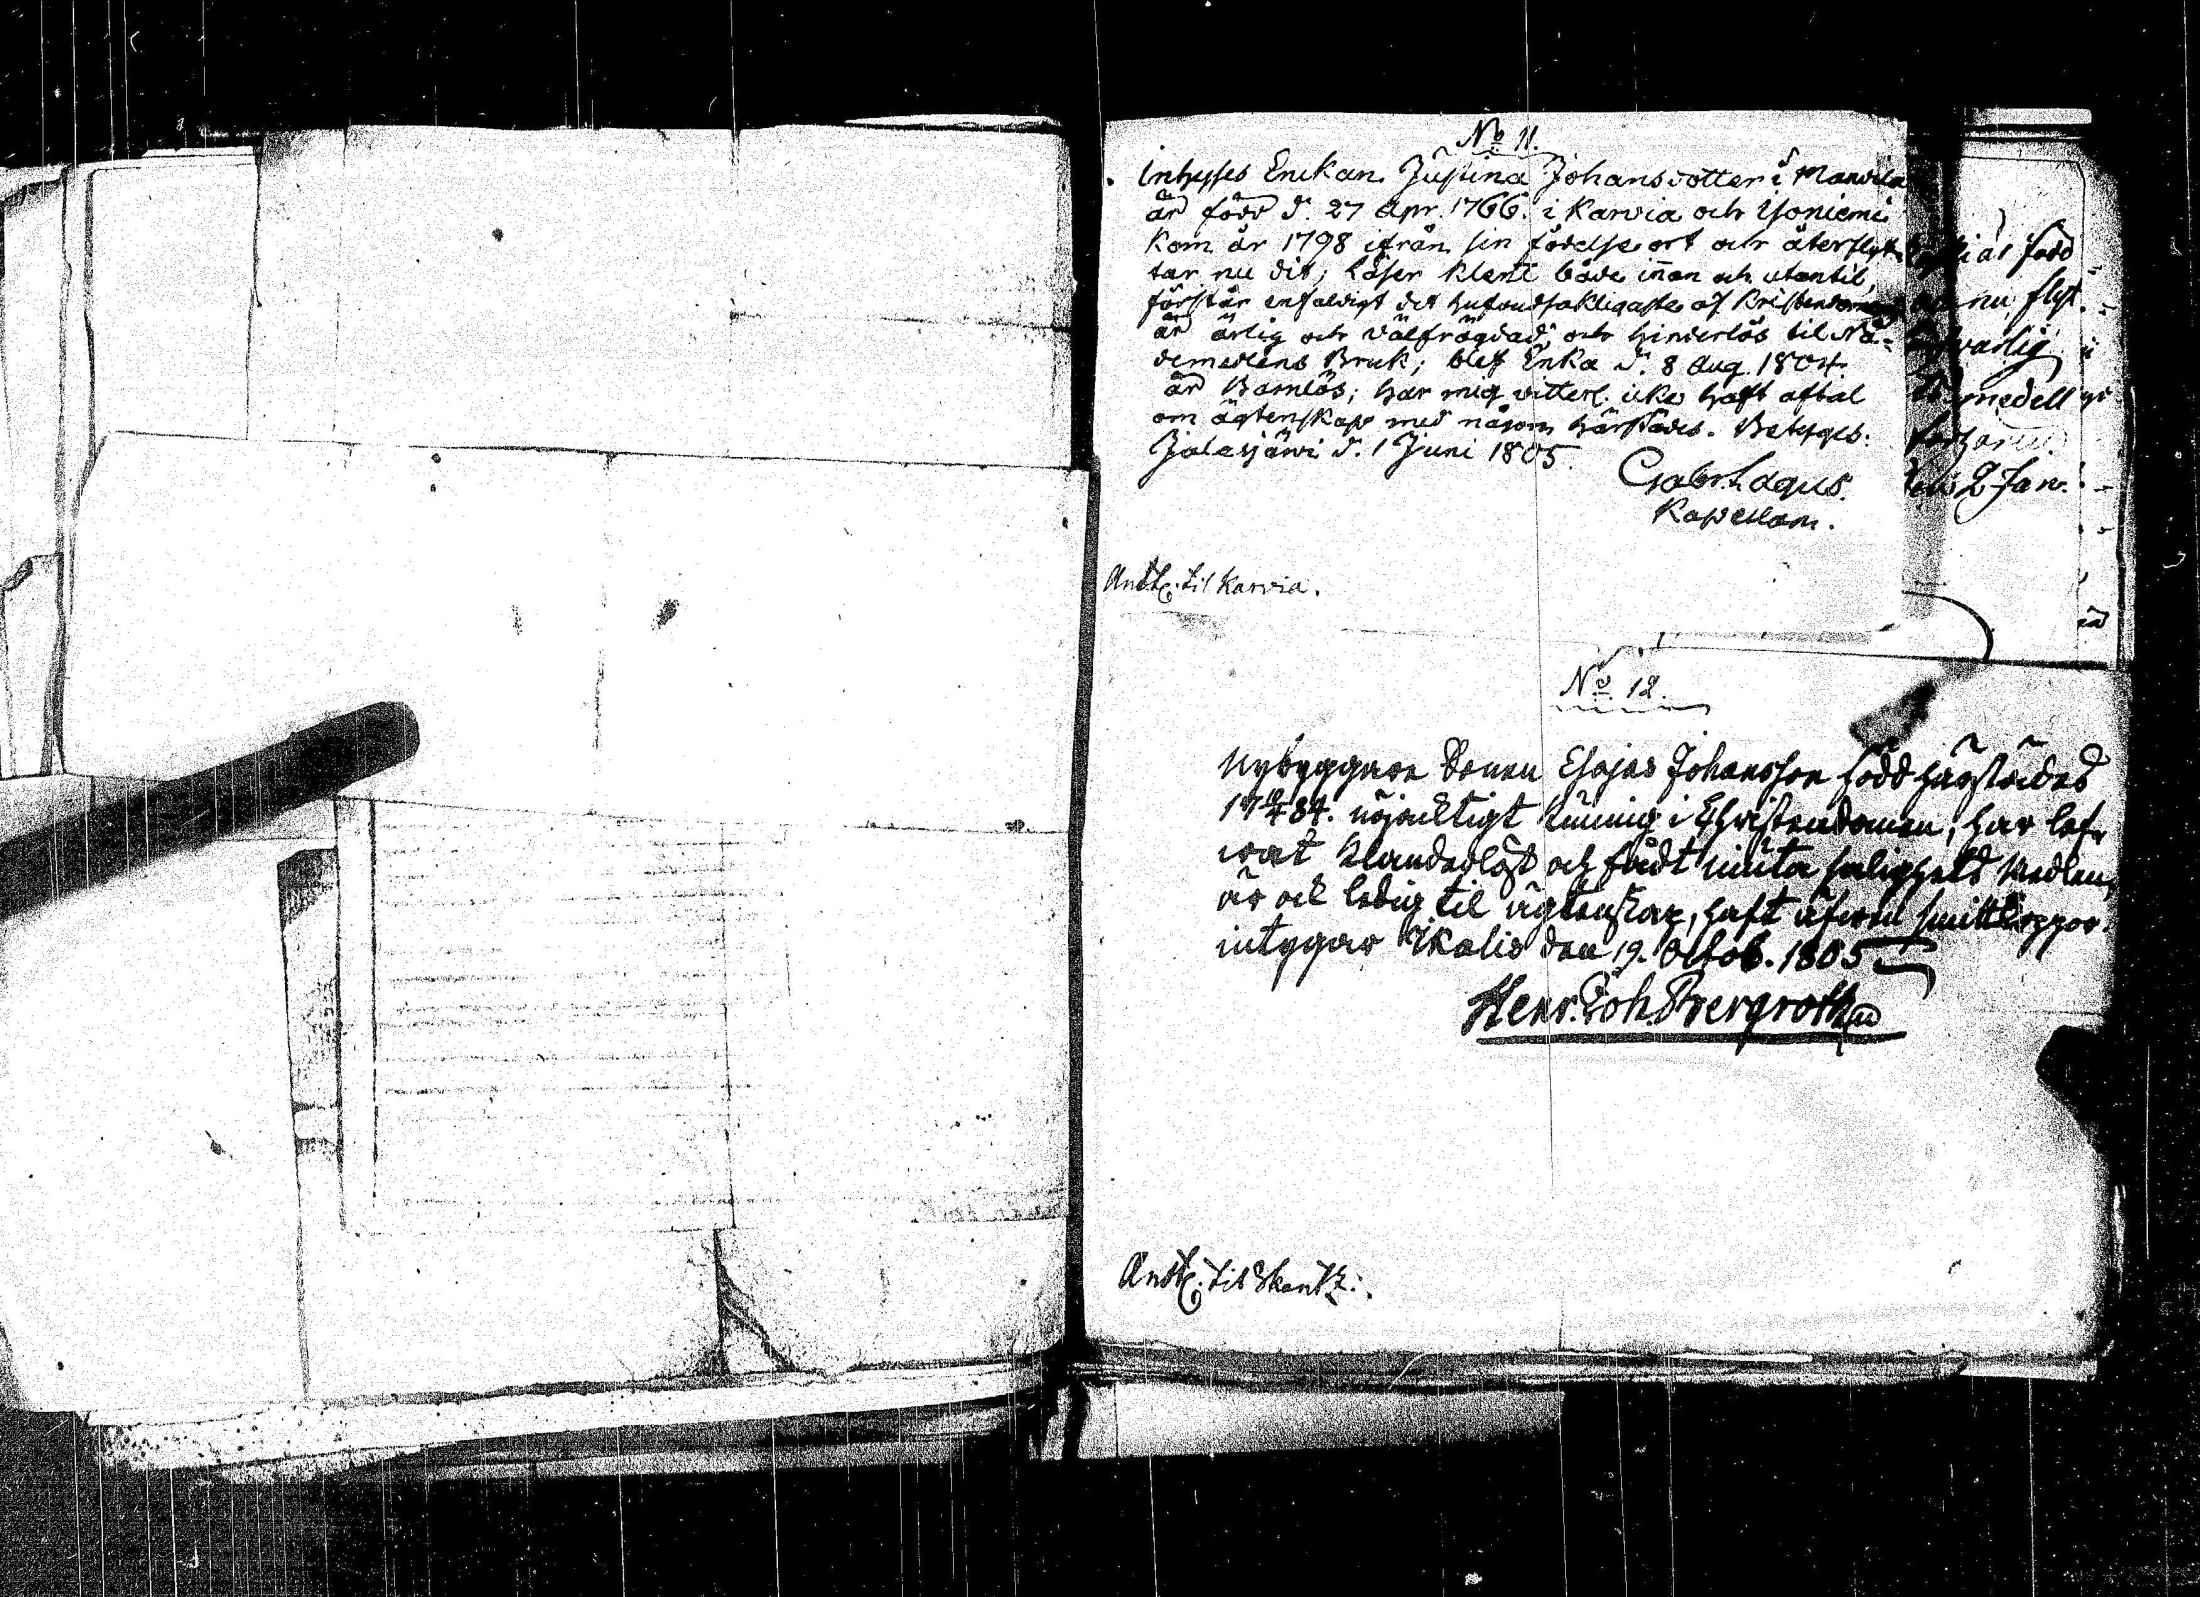 No 11.
Inhyses Enckan Justina Johansdotter i Mandila
är född d. 27 Apr. 1766. i Karvia och Yoniemi
Kom år 1798 ifrån sin födelse ort och återflyt-
tar nu dit; Läser klent både innan och utantil,
förstår enfaldigt det hufvudsakligaste af Kristendomen
är ärlig och välfrägdad och hinderlös til Nå-
demedlens Bruk; blef Enka d. 8 Aug. 1804.
är Barnlös; har mig vitterl. icke haft aftal
om ägtenskap med någon härstädes. Betyges.
Jalasjärvi d. 1 Juni 1805.
Gabr. Lagus.
Kapellan.
är född
nu flyt.
varlig
medell
2 Jan.
Anst. til Karvia.
No 12.
Nybyggare Sonen Esajas Johansson född härstädes
1784. nöjaktigt kunnig i Christendomen, har lef-
wat klanderlöst och fådt niuta salighets Medlen,
är ock ledig til ägtenskap, haft äfwen smittkoppor.
intygar Ikalis den 19. Octob. 1805
Henr. Joh. Bergroth
Anst. til Skantz.